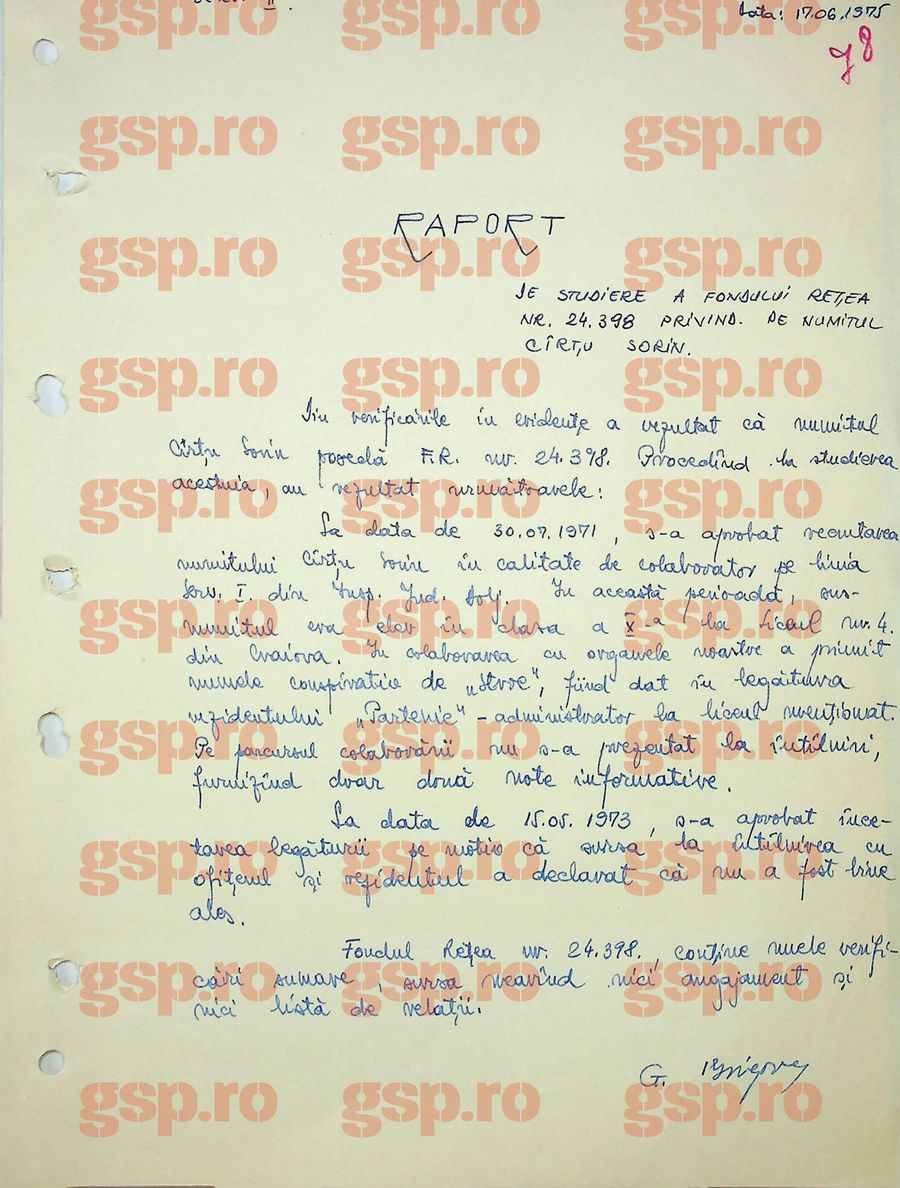 Data: 17.06.1975
78
RAPORT
DE STUDIERE A FONDULUI REȚEA
NR. 24.398 PRIVIND. PE NUMITUL
CÎRȚU SORIN.
Din verificările în evidențe a rezultat că numitul
Cîrțu Sorin posedă F.R. nr. 24.398. Procedînd la studierea
acestuia, au rezultat următoarele:
La data de 30.07.1971, s-a aprobat recrutarea
numitului Cîrțu Sorin în calitate de colaborator pe linia
Serv. I. din Insp. Jud. Dolj. În această perioadă, sus-
numitul era elev în clasa a X-a la Liceul nr. 4.
din Craiova. În colaborarea cu organele noastre a primit
numele conspirativ de „Stroe", fiind dat în legătura
rezidentului „Partenie" - administrator la liceul menționat.
Pe parcursul colaborării nu s-a prezentat la întîlniri,
furnizînd doar două note informative.
La data de 15.05.1973, s-a aprobat ince-
tarea legăturii pe motiv că sursa la întîlnirea cu
ofițerul și rezidentul a declarat că nu a fost bine
ales.
Fondul Rețea nr. 24.398., conține unele verifi-
cări sumare, sursa neavînd nici angajament și
nici listă de relații.
G.
gsp.ro gsp.ro gsp.ro
gsp.ro gsp.ro gsp.ro
gsp.ro gsp.ro gsp.ro
gsp.ro gsp.ro gsp.ro
gsp.ro gsp.ro gsp.ro
gsp.ro gsp.ro gsp.ro
gsp.ro gsp.ro gsp.ro
gsp.ro gsp.ro gsp.ro
gsp.ro gsp.ro gsp.ro
gsp.ro gsp.ro gsp.ro